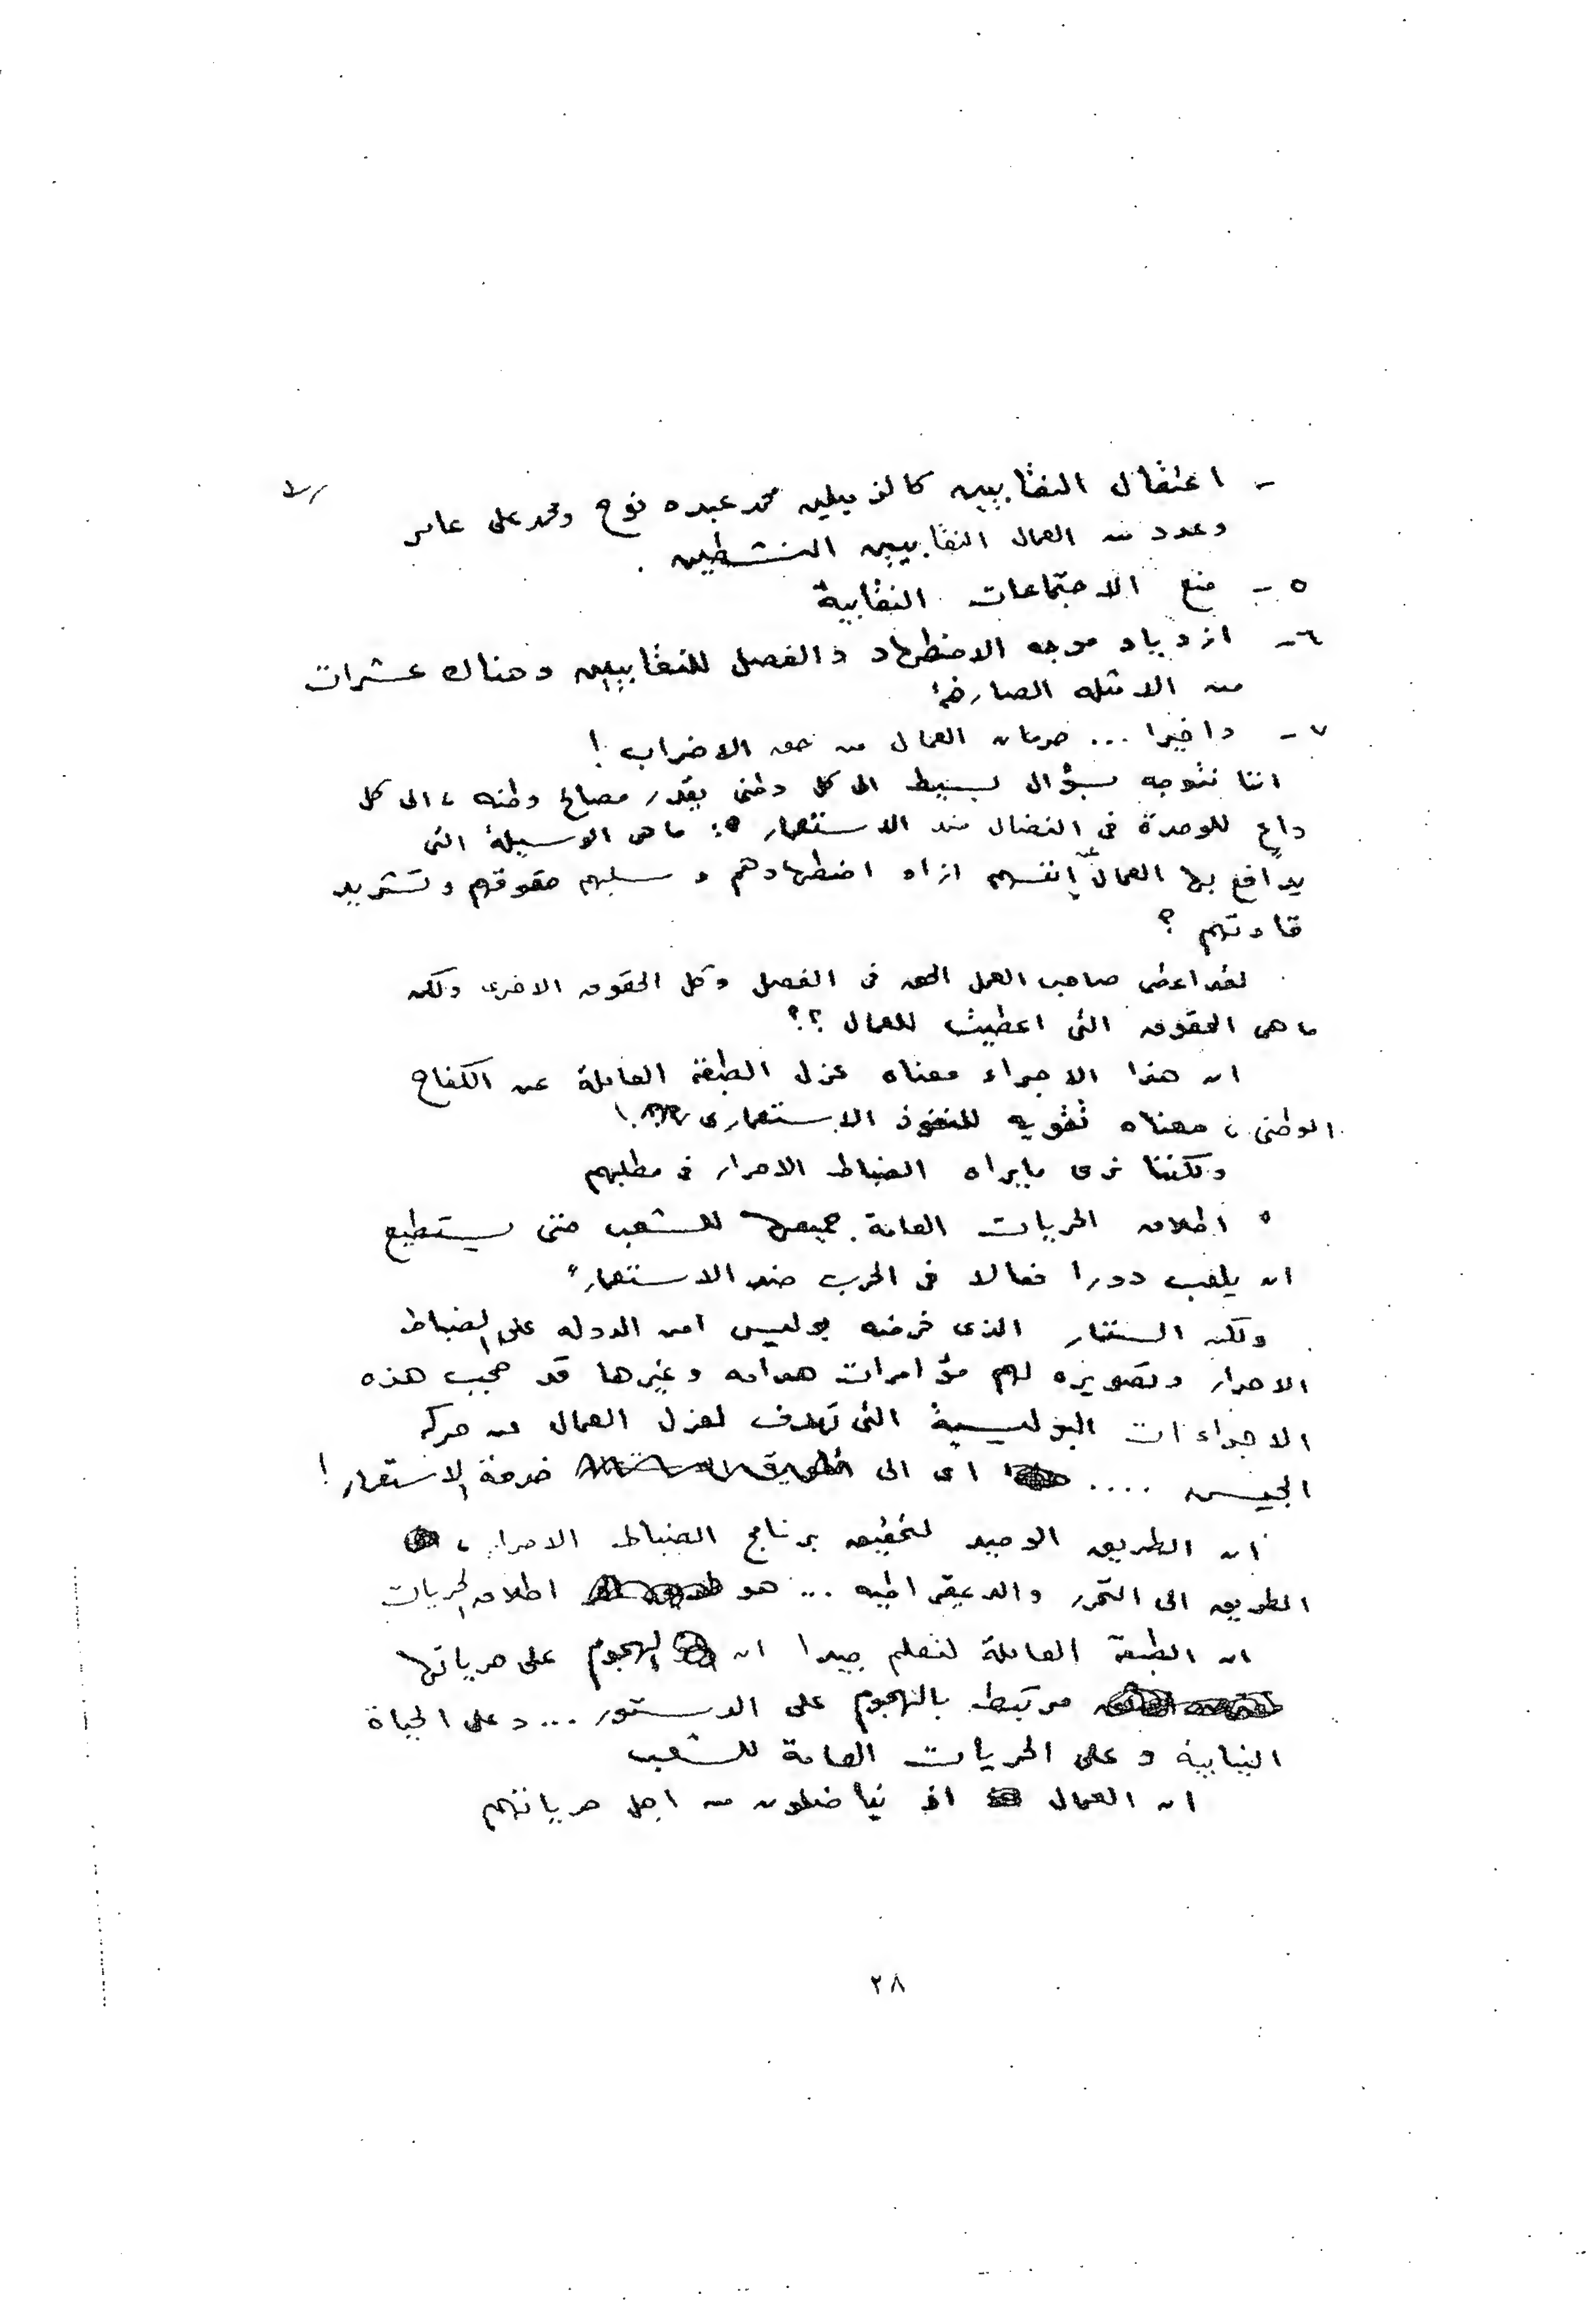 - اعتقال النقابيين كالزميلين محمد عبده نوح ومحمد على عامر
وعدد من العمال النقابيين النشطين .
٥ - منع الاجتماعات النقابية
٦ - ازدياد موجه الاضطهاد والفصل للنقابيين وهناك عشرات
من الامثله الصارخة
٧ - واخيرا ... حرمان العمال من حق الاضراب !
اننا نتوجه بسؤال بسيط الى كل وطنى يقدر مصالح وطنه ، الى كل
داع للوحدة فى النضال ضد الاستعمار : ما هى الوسيلة التى
يدافع بها العمال عن انفسهم ازاء اضطهادهم و سلبهم حقوقهم وتشريد
قادتهم ؟
لقد اعطى صاحب العمل الحق فى الفصل وكل الحقوق الاخرى ولكن
ما هى الحقوق التى اعطيت للعمال ؟؟
ان هذا الاجراء معناه عزل الطبقة العاملة عن الكفاح
الوطنى ، معناه تقويه للنفوذ الاستعمارى !
ولكننا نرى مايراه الضباط الاحرار فى مطلبهم
" اطلاق الحريات العامة جميعها للشعب حتى يستطيع
ان يلعب دورا فعالا فى الحرب ضد الاستعمار "
ولكن الستار الذى فرضه بوليس امن الدوله على الضباط
الاحرار وتصويره لهم مؤامرات هدامه وغيرها قد حجب هذه
الاجراءات البوليسية التى تهدف لعزل العمال عن حركه
الجيش .... اى الى خدمة الاستعمار !
ان الطريق الوحيد لتحقيق برنامج الضباط الاحرار ،
الطريق الى التحرر والديمقراطيه ... هو اطلاق الحريات
ان الطبقة العاملة لتعلم جيدا ان الهجوم على حرياتها
مرتبط بالهجوم على الدستور ... وعلى الحياة
النيابية وعلى الحريات العامة للشعب
ان العمال اذ يناضلون من اجل حرياتهم
٢٨